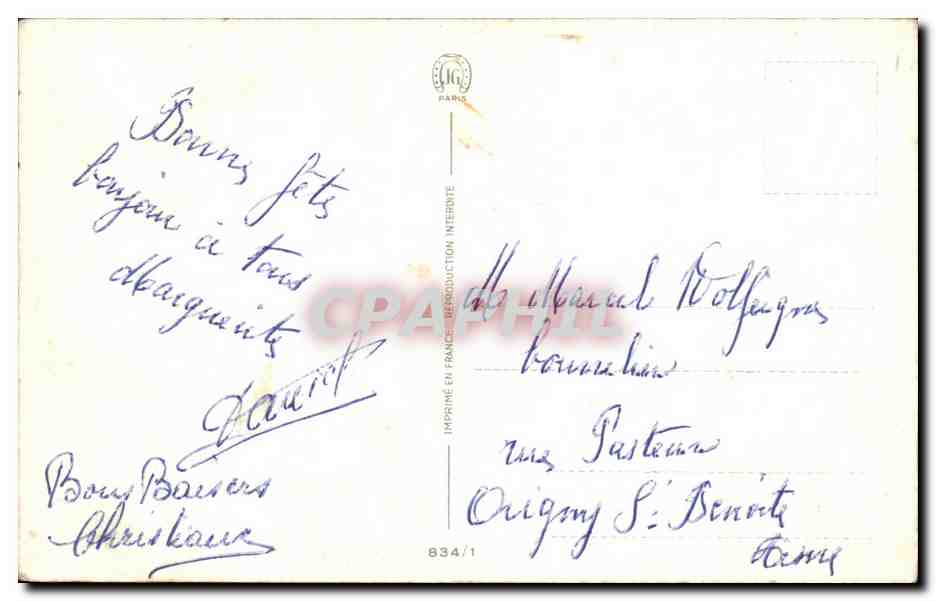 JG
PARIS
Bonnes fêtes
bonjour à tous
Marguerite
Bons Baisers
Christiane
IMPRIMÉ EN FRANCE. REPRODUCTION INTERDITE
CPAPHIL
Mr Marcel
rue Pasteur
Origny St Benoite
Aisne
834/1